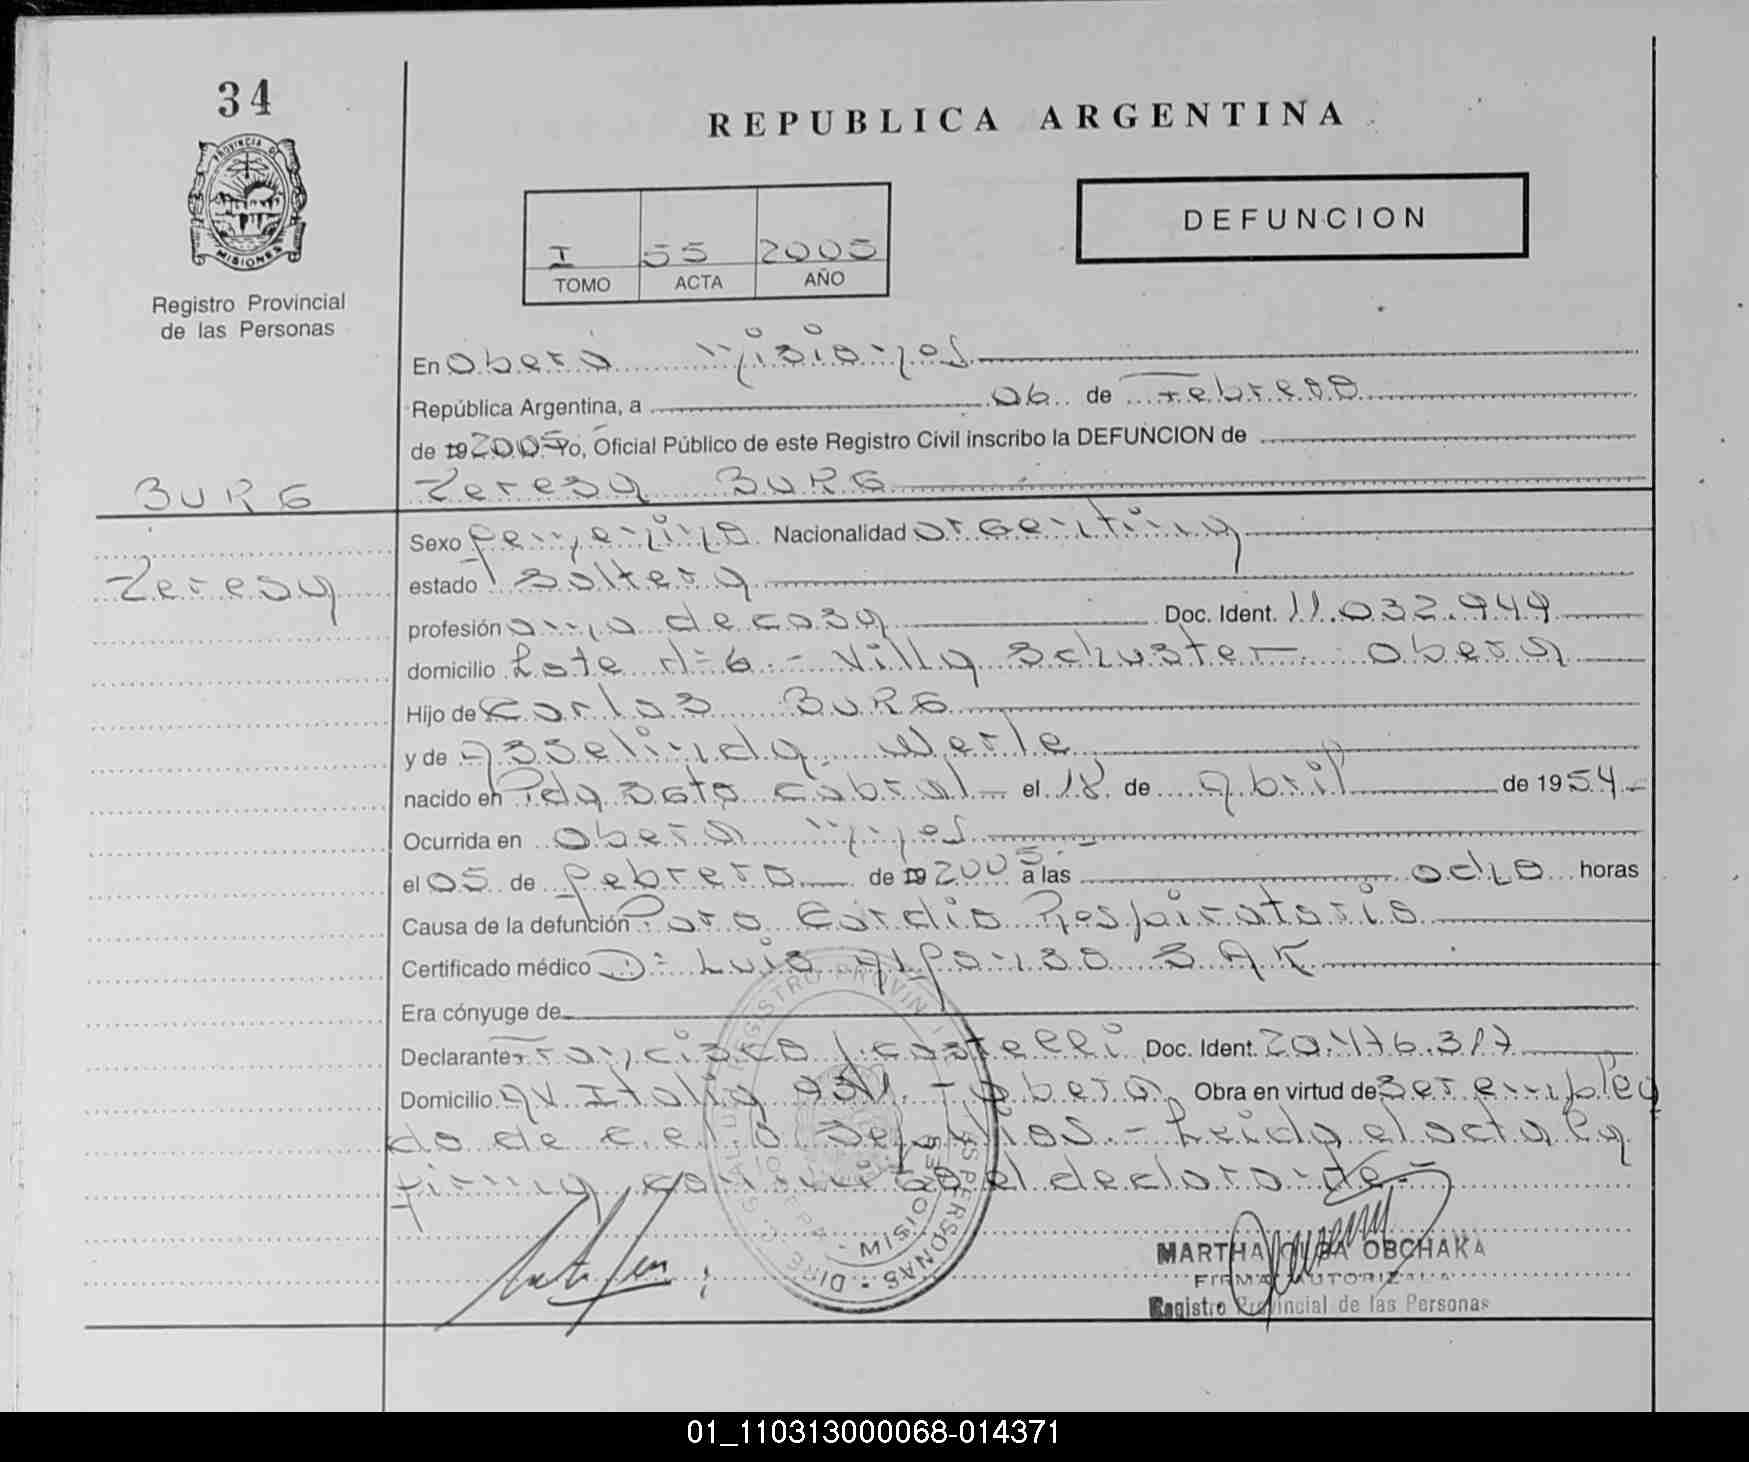 34
REPUBLICA ARGENTINA
PROVINCIA DE
MISIONES
Registro Provincial
de las Personas
I 55 2005
TOMO ACTA AÑO
DEFUNCION
En Oberá Misiones
República Argentina, a 06 de Febrero
de 19 2005 Yo, Oficial Público de este Registro Civil inscribo la DEFUNCION de
BURG Teresa BURG
Teresa
Sexo femenino Nacionalidad Argentina
estado Soltera
profesión ama de casa Doc. Ident. 11.032.949
domicilio Lote nº 6 - Villa Schuster Oberá
Hijo de Carlos BURG
y de Asselinda Werle
nacido en Pda Sgto Cabral el 18 de Abril de 1954
Ocurrida en Oberá Mnes
el 05 de febrero de 19 2005 a las ocho horas
Causa de la defunción Paro Cardio Respiratorio
Certificado médico Dr Luis Alfonso
Era cónyuge de
Declarante Francisco Castelli Doc. Ident. 20.476.317
Domicilio Av Italia - Oberá Obra en virtud de Ser emplea
do de - Leída el acta la
firma conmigo el declarante
REGISTRO PROVINCIAL DE LAS PERSONAS
MISIONES
MARTHA OLGA OBCHAKA
FIRMA AUTORIZADA
Registro Provincial de las Personas
01_110313000068-014371